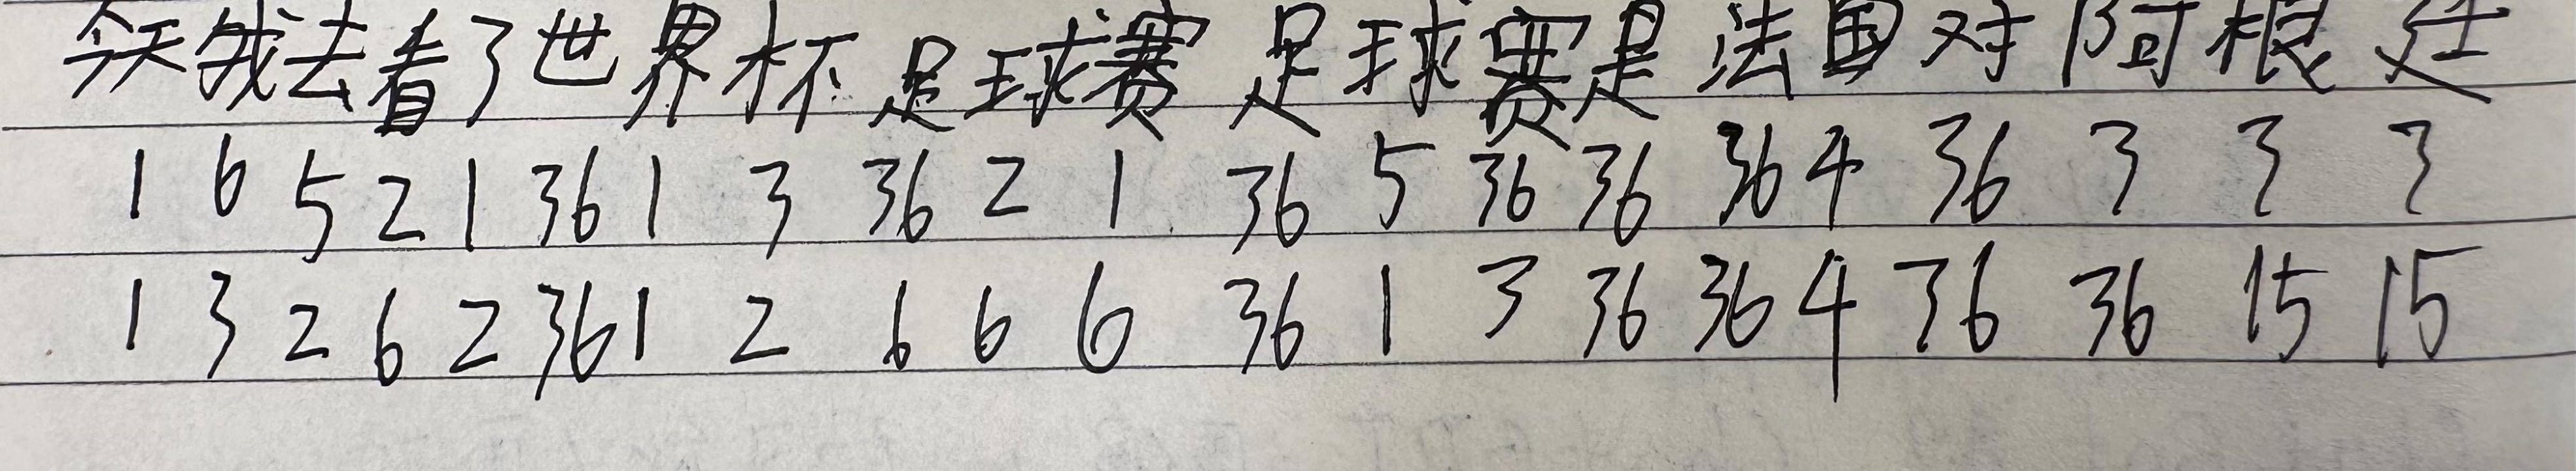 今天我去看了世界杯足球赛 足球赛是法国对阿根廷
1 6 5 2 1 36 1 3 36 2 1 36 5 36 36 36 4 36 3 3 3
1 3 2 6 2 36 1 2 6 6 6 36 1 3 36 36 4 36 36 15 15